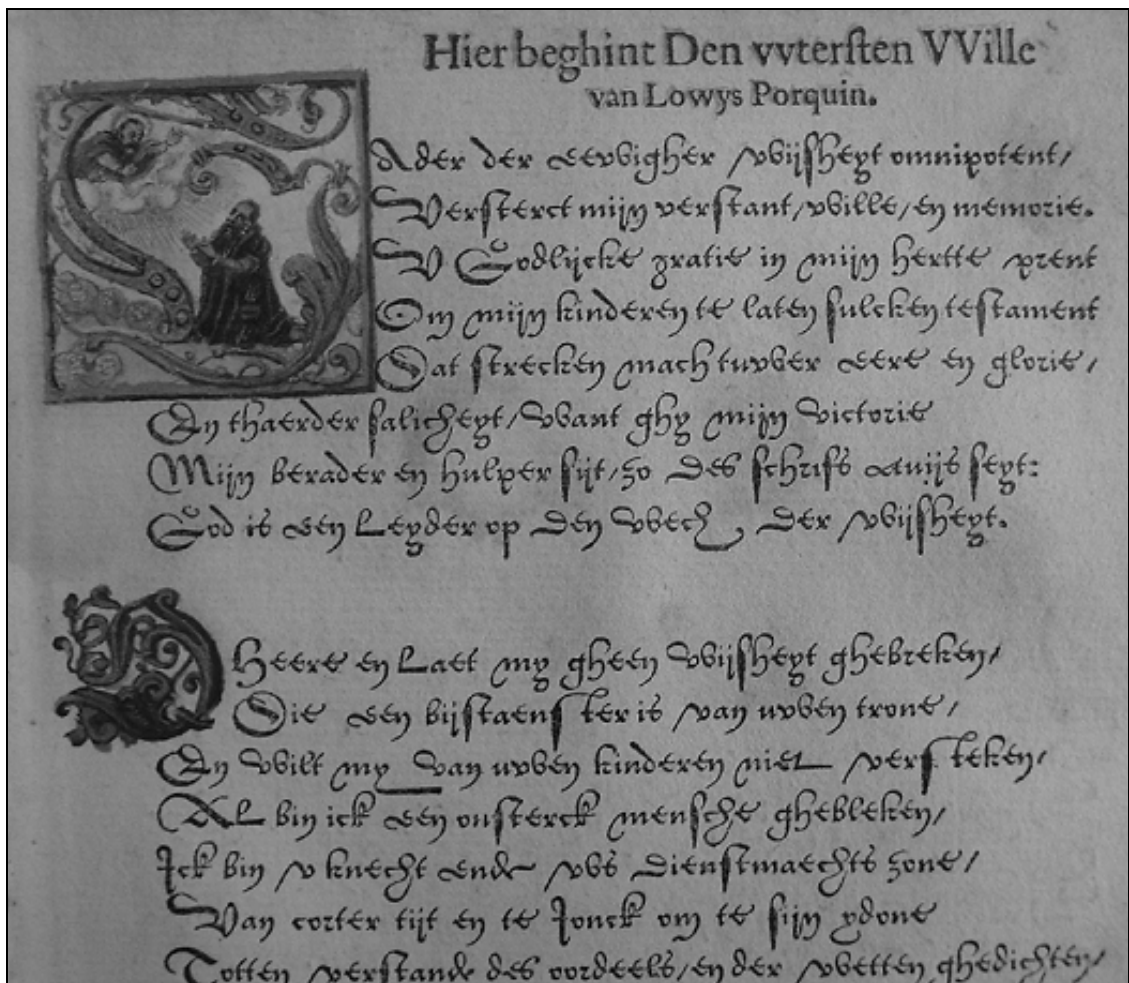 Hier beghint Den vvtersten VVille
van Lowys Porquin.
VAder der eewigher wijsheyt omnipotent/
Versterct mijn verstant/wille/en memorie.
V Godlijcke gratie in mijn hertte prent
Om mijn kinderen te laten sulcken testament
Dat strecken mach tuwber eere en glorie/
En thaerder salicheyt/Want ghy mijn Victorie
Mijn berader en hulper sijt/zo des schrifs aduijs seyt:
God is een Leyder op den Wech, der wijsheyt.
O Heere en Laet my gheen Wijsheyt ghebreken/
Die een bijstaenster is van uwen trone/
En Wilt my Van uwen kinderen niet versteken/
AL bin ick een onsterck mensche ghebleken/
Ick bin v knecht ende ws dienstmaechts zone/
Van corter tijt en te Jonck om te sijn ydone
Totten verstande des oordeels/en der wetten ghedichten/